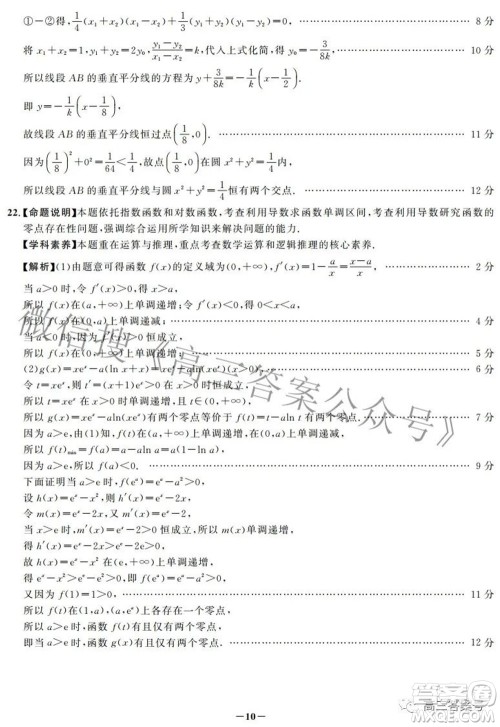 ①－②得，1/4(x₁－x₂)(x₁＋x₂)＋(y₁－y₂)(y₁＋y₂)＝0. 8 分
将 x₁＋x₂＝1，y₁＋y₂＝2y₀，(y₁－y₂)/(x₁－x₂)＝k，代入上式化简，得 y₀＝－1/(8k). 10 分
所以线段 AB 的垂直平分线的方程为 y＋3/(8k)＝－1/k(x－1/2).
即 y＝－1/k(x－1/8).
故线段 AB 的垂直平分线恒过点(1/8,0). 11 分
因为(1/8)²＋0²＝1/64＜1/4，故点(1/8,0)在圆 x²＋y²＝1/4内.
所以线段 AB 的垂直平分线与圆 x²＋y²＝1/4恒有两个交点. 12 分
22.【命题说明】本题依托指数函数和对数函数，考查利用导数求函数单调区间，考查利用导数研究函数的
零点存在性问题，强调综合运用所学知识来解决问题的能力.
【学科素养】本题重在运算与推理，重点考查数学运算和逻辑推理的核心素养.
【解析】(1)由题意可得函数 f(x)的定义域为(0,＋∞)，f′(x)＝1－a/x＝(x－a)/x. 2 分
当 a＞0 时，令 f′(x)＞0，得 x＞a，
所以 f(x)在(a,＋∞)上单调递增；令 f′(x)＜0，得 0＜x＜a，
所以 f(x)在(0,a)上单调递减； 4 分
当 a≤0 时，因为 f′(x)＞0 恒成立，
所以 f(x)在(0,＋∞)上单调递增. 5 分
(2)g(x)＝xeˣ－a(ln x＋x)＝xeˣ－aln(xeˣ)(x＞0). 6 分
令 t＝xeˣ，则 t′＝(x＋1)eˣ＞0 在 x＞0 时恒成立，
所以 t＝xeˣ 在 x＞0 时单调递增，且 t∈(0,＋∞)，
所以 g(x)＝xeˣ－aln(xeˣ)有两个零点等价于 f(t)＝t－aln t 有两个零点. 7 分
因为 a＞e，由(1)知，f(t)在(0,a)上单调递减，在(a,＋∞)上单调递增，
所以 f(t)min＝f(a)＝a－aln a＝a(1－ln a).
因为 a＞e，所以 f(a)＜0. 9 分
下面证明当 a＞e 时，f(eᵃ)＝eᵃ－aln eᵃ＝eᵃ－a²＞0.
设 h(x)＝eˣ－x²，则 h′(x)＝eˣ－2x，
令 m(x)＝h′(x)＝eˣ－2x，
当 x＞e 时，m′(x)＝eˣ－2＞0 恒成立，所以 m(x)单调递增，
得 h′(x)＝eˣ－2x＞eᵉ－2e＞0，
故 h(x)＝eˣ－x² 在(e,＋∞)上单调递增，
得 eˣ－x²＞eᵉ－e²＞0，即 eᵃ＞a²，
又因为 f(1)＝1＞0，
所以 f(t)在(1,a)，(a,eᵃ)上各存在一个零点，
所以当 a＞e 时，函数 f(t)有且仅有两个零点，
即当 a＞e 时，函数 g(x)有且仅有两个零点. 12 分
微信搜《高三答案公众号》
－10－
高三答案号